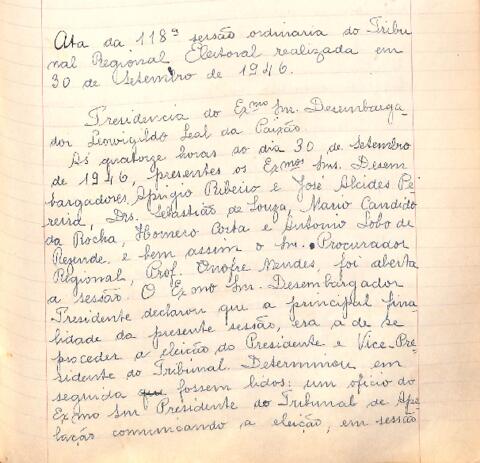 Ata da 118ª sessão ordinaria do Tribu
nal Regional Eleitoral realizada em
30 de Setembro de 1946.
Presidencia do Exmo Snr. Desembarga-
dor Leovigildo Leal da Paixão.
Ás quatorze horas do dia 30 de Setembro
de 1946, presentes os Exmos Snrs. Desem
bargadores Aprigio Ribeiro e José Alcides Pe
reira, Drs. Sebastião de Souza, Mario Candido
da Rocha, Homero Costa e Antonio Lobo de
Resende e bem assim o Snr. Procurador
Regional, Prof. Onofre Mendes, foi aberta
a sessão. O Exmo Snr. Desembargador
Presidente declarou que a principal fina-
lidade da presente sessão, era a de se
proceder a eleição do Presidente e Vice-Pre-
sidente do Tribunal. Determinou em
seguida que fossem lidos: um oficio do
Exmo Snr Presidente do Tribunal de Ape
lação comunicando a eleição, em sessão